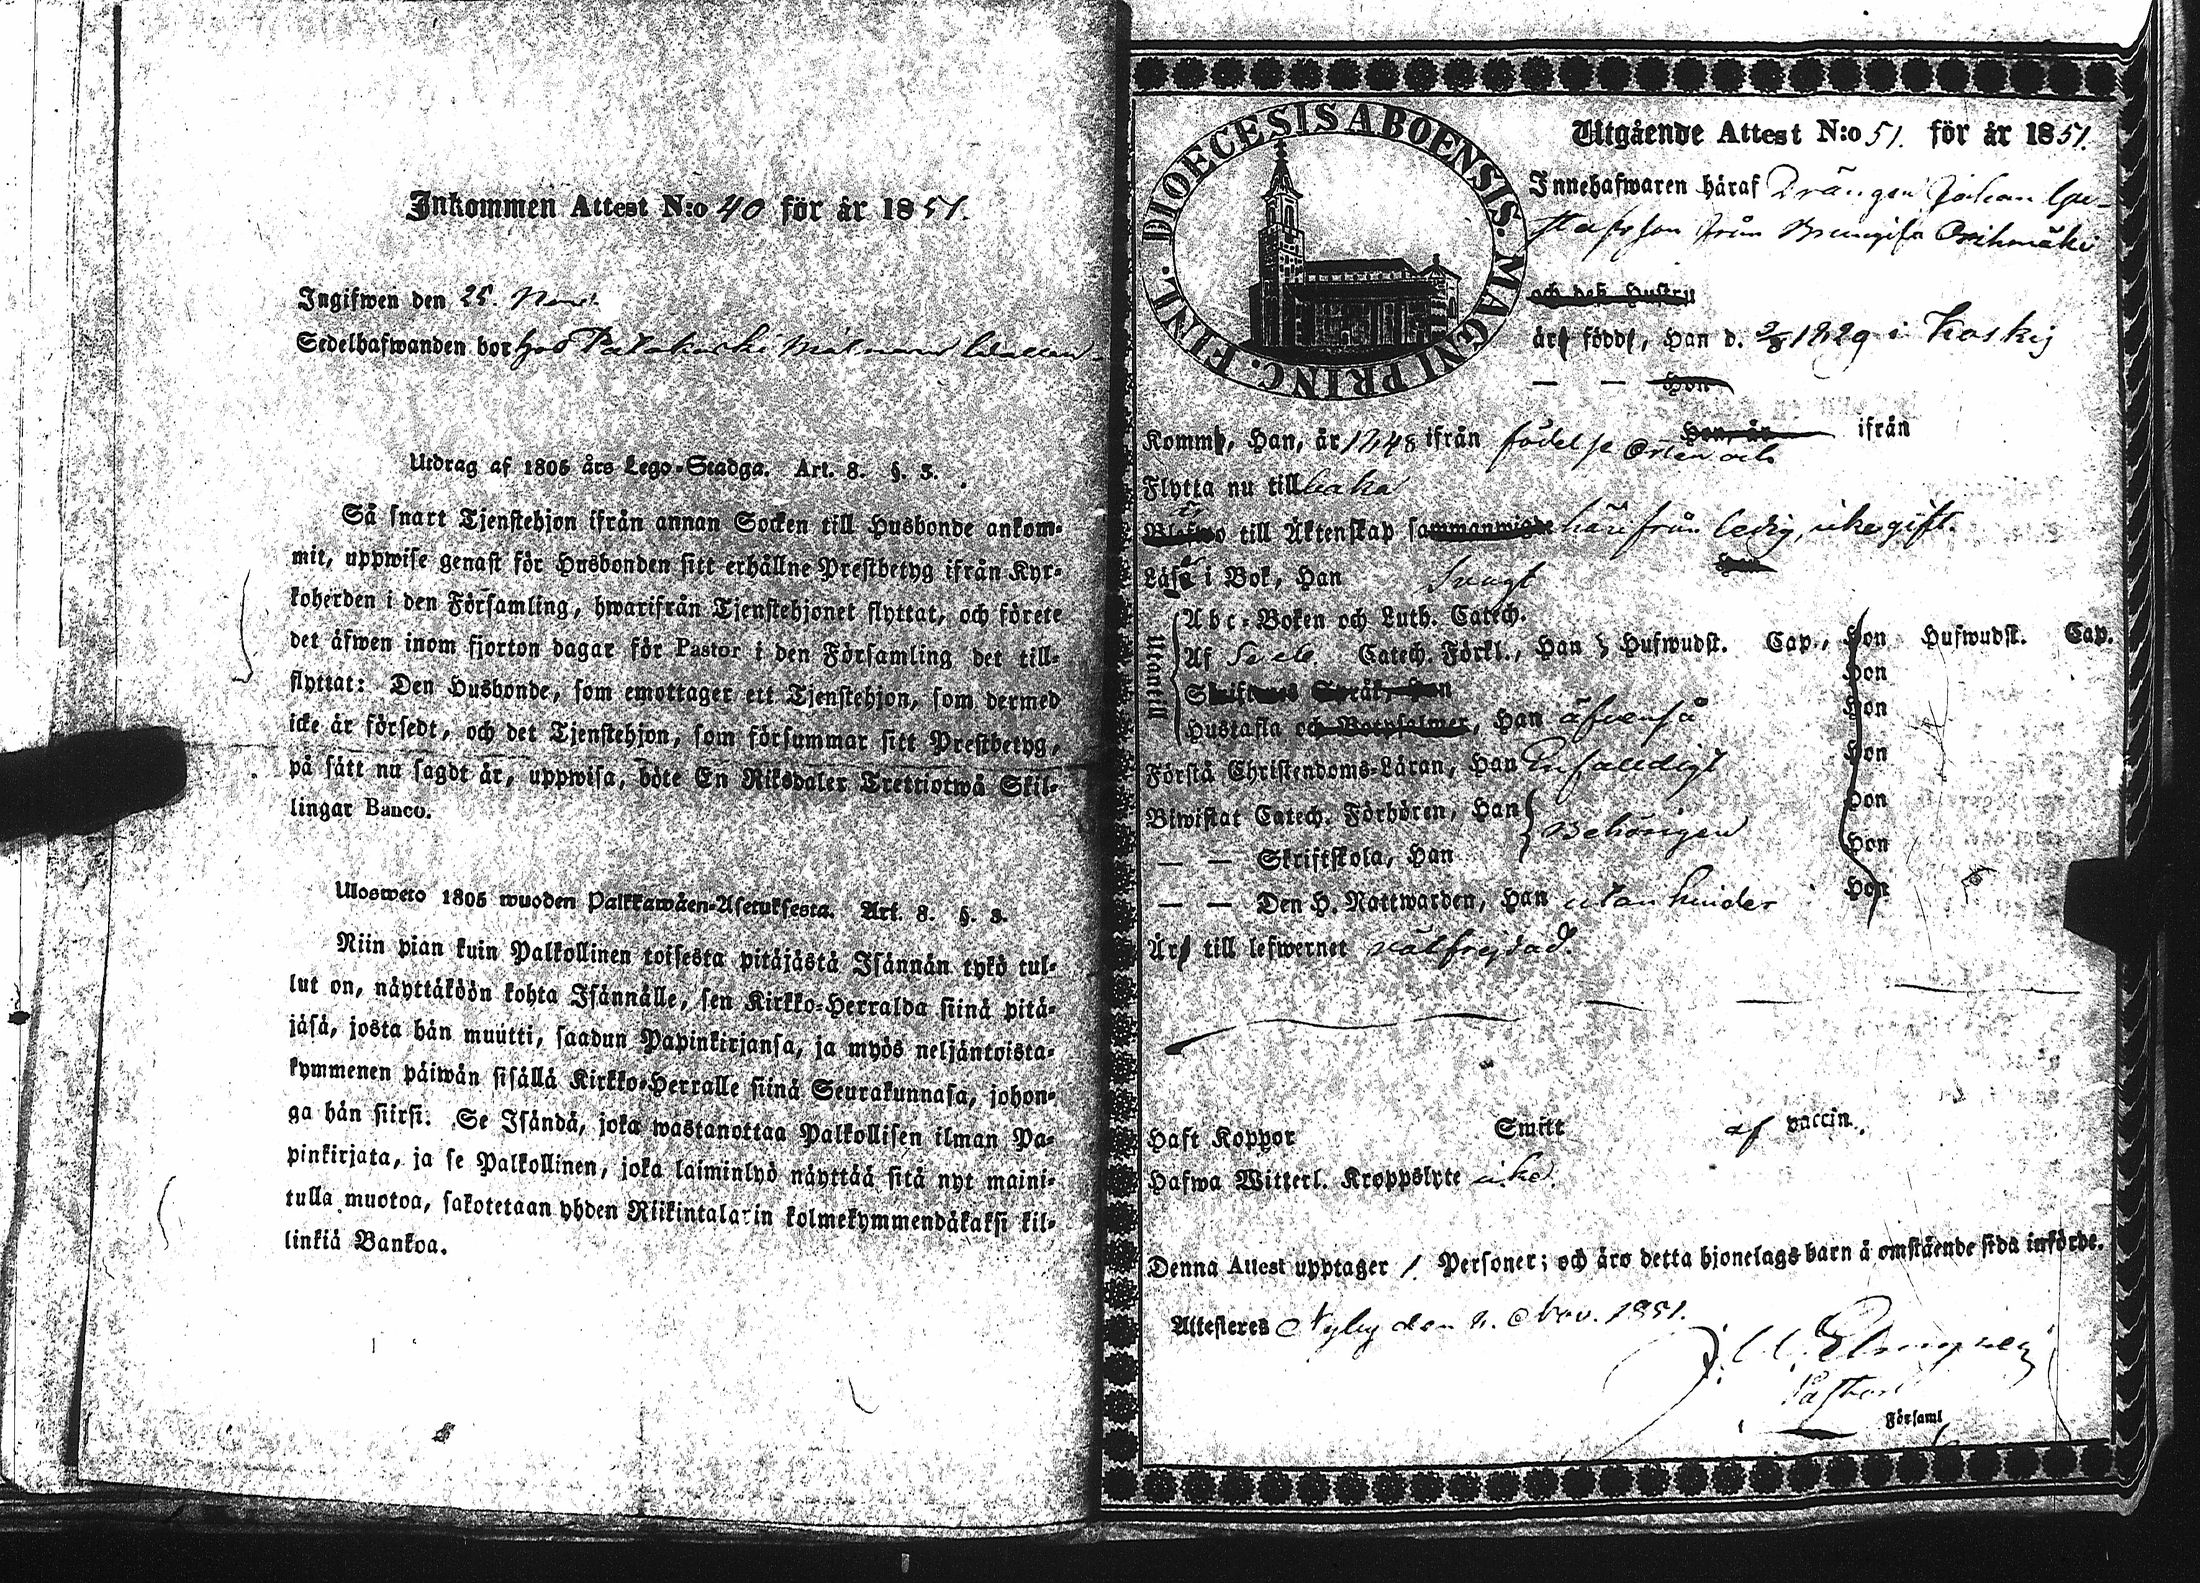 Inkommen Attest N:o 40 för år 1851.
Ingifwen den 25. Nov.
Sedelhafwanden bor hos
Utdrag af 1805 års Lego-Stadga. Art. 8. §. 3.
Så snart Tjenstehjon ifrån annan Socken till Husbonde ankom-
mit, uppwise genast för Husbonden sitt erhållne Prestbetyg ifrån Kyr-
koherden i den Församling, hwarifrån Tjenstehjonet flyttat, och förete
det äfwen inom fjorton dagar för Pastor i den Församling det till-
flyttat: Den Husbonde, som emottager ett Tjenstehjon, som dermed
icke är försedt, och det Tjenstehjon, som försummar sitt Prestbetyg,
på sätt nu sagdt är, uppwisa, böte En Riksdaler Trettiotwå Skil-
lingar Banco.
Ulosweto 1805 wuoden Palkkawäen-Asetuksesta. Art. 8. §. 3.
Niin pian kuin Palkollinen toisesta pitäjästä Isännän tykö tul-
lut on, näyttäköön kohta Isännälle, sen Kirkko-Herralda siinä pitä-
jäsä, josta hän muutti, saadun Papinkirjansa, ja myös neljäntoista-
kymmenen päiwän sisällä Kirkko-Herralle siinä Seurakunnasa, johon-
ga hän siirsi. Se Isändä, joka wastanottaa Palkollisen ilman Pa-
pinkirjata, ja se Palkollinen, joka laiminlyö näyttää sitä nyt maini-
tulla muotoa, sakotetaan yhden Riikintalarin kolmekymmendäkaksi kil-
linkiä Bankoa.
DIOECESIS ABOENSIS. MAGNI PRINC. FINL.
Utgående Attest N:o 51. för år 1851.
Innehafwaren häraf Drängen Johan Gu-
stafsson från
och deß Hustru
är född, Han d. 2/8 1829 i Koskis
— — Hon
Komm, Han, år 1848 ifrån födelse Orten och Hon, år ifrån
Flytta nu tillbaka
till Äktenskap härifrån ledig, icke gift.
Läser i Bok, Han Svagt Hon
Utantill
Abc-Boken och Luth. Catech.
Af Catech. Förkl., Han Hufwudst. Cap., Hon Hufwudst. Cap.
Skriftenes Språk, Han Hon
Hustafla och Botpsalmer, Han äfvenså Hon
Förstå Christendoms-Läran, Han Enfaldigt Hon
Biwistat Catech. Förhören, Han Behörigen Hon
— — Skriftskola, Han Hon
— — Den H. Nattwarden, Han utan hinder Hon
Är till lefwernet välfrejdad.
Haft Koppor Smitt af vaccin.
Hafwa Witterl. Kroppslyte icke.
Denna Attest upptager 1. Personer; och äro detta hjonelags barn å omstående sida införde.
Attesteras Nyby den Nov. 1851.
Pastor
Församl